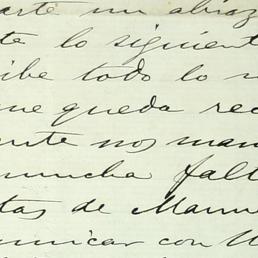 arte un abraz
te lo siguient
ibe todo lo
me queda rec
ente nos man
muncha falt
tas de Manu
unicar con